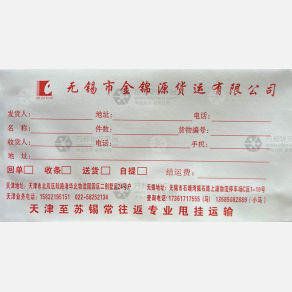 无锡市金锦源货运有限公司
发货人： 地址： 电话：
名 称： 件数： 货物编号：
收货人： 电话： 手机：
地 址：
回单 收条 送货 自提 结运费：
天津地址：天津市北辰区 24号户 无锡地址：无锡市石塘湾 C区1-10号
天津业务电话：15822156151 022-58252134 查询电话：17361717555 (马) 13585082889 (小马)
天津至苏锡常往返专业甩挂运输